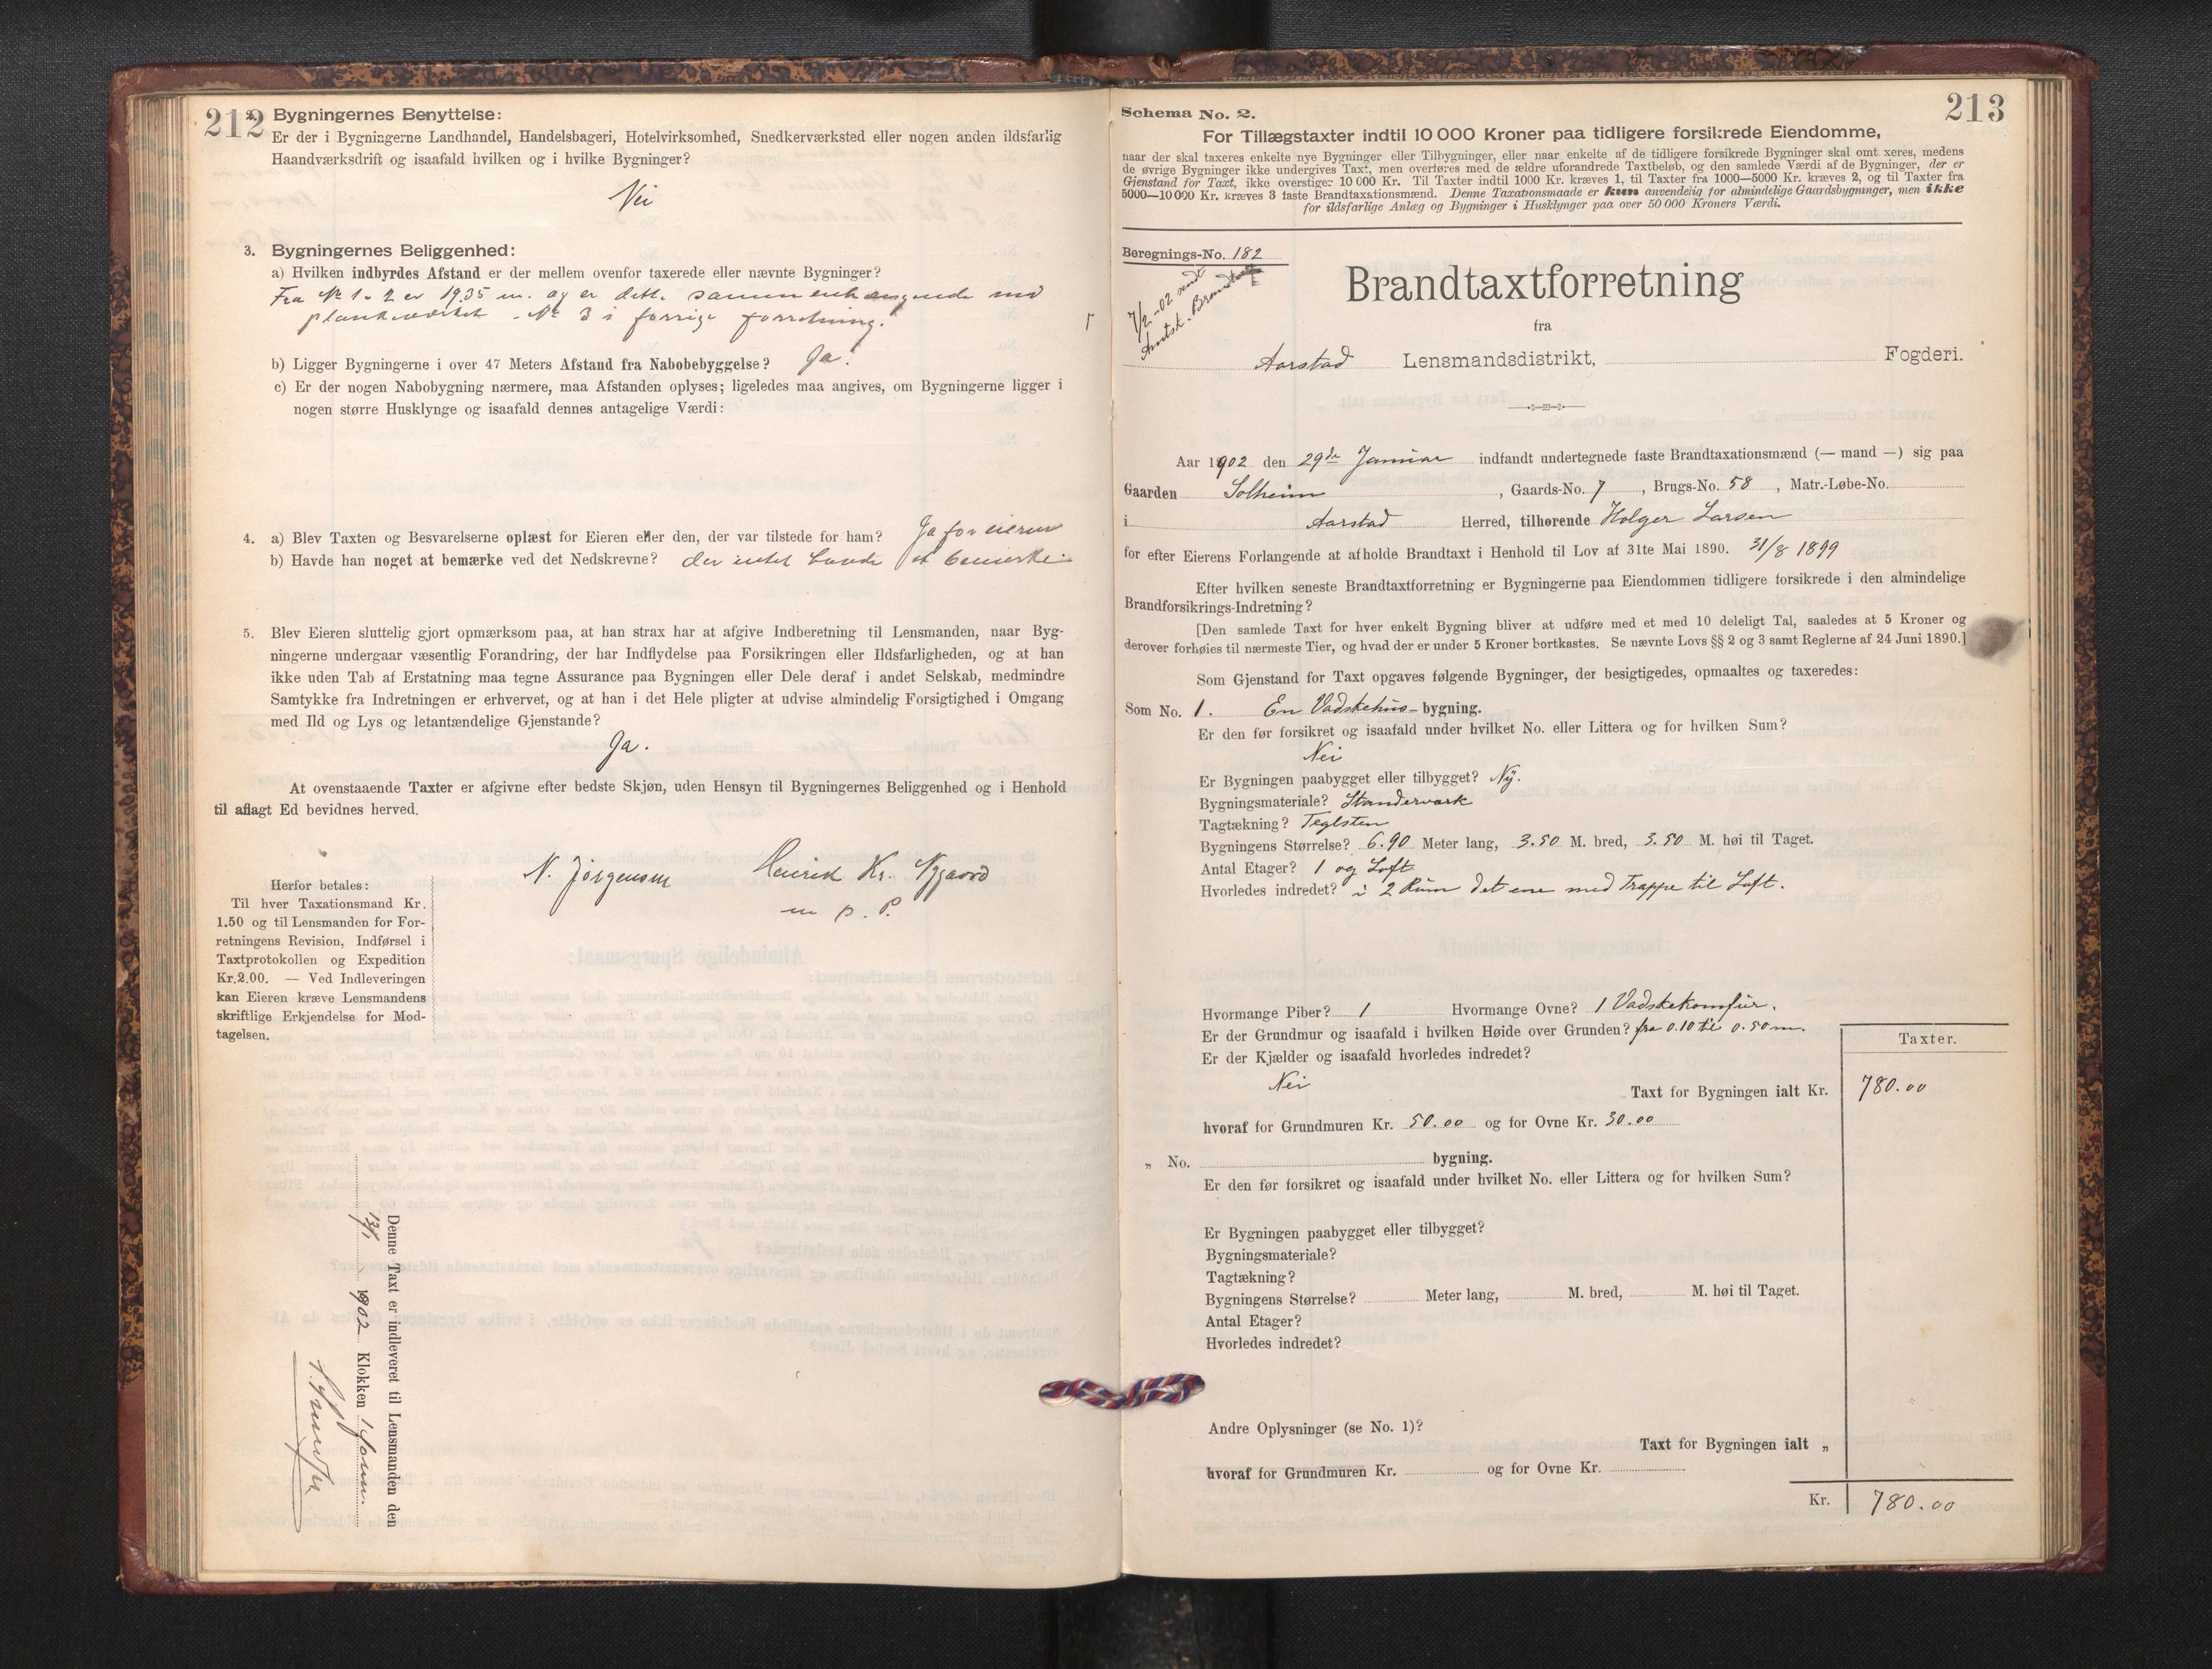 212
2. Bygningernes Benyttelse:
Er der i Bygningerne Landhandel, Handelsbageri, Hotelvirksomhed, Snedkerværksted eller nogen anden ildsfarlig
Haandværksdrift og isaafald hvilken og i hvilke Bygninger?
Nei
3. Bygningernes Beliggenhed:
a) Hvilken indbyrdes Afstand er der mellem ovenfor taxerede eller nævnte Bygninger?
Fra No 1-2 er 19.35 m. og er dette sammenhængende med
plankeværket - No 3 i forrige forretning.
b) Ligger Bygningerne i over 47 Meters Afstand fra Nabobebyggelse? Ja.
c) Er der nogen Nabobygning nærmere, maa Afstanden oplyses; ligeledes maa angives, om Bygningerne ligger i
nogen større Husklynge og isaafald dennes antagelige Værdi:
4. a) Blev Taxten og Besvarelserne oplæst for Eieren eller den, der var tilstede for ham? Ja for eieren
b) Havde han noget at bemærke ved det Nedskrevne? der intet havde at bemerke
5. Blev Eieren sluttelig gjort opmærksom paa, at han strax har at afgive Indberetning til Lensmanden, naar Byg-
ningerne undergaar væsentlig Forandring, der har Indflydelse paa Forsikringen eller Ildsfarligheden, og at han
ikke uden Tab af Erstatning maa tegne Assurance paa Bygningen eller Dele deraf i andet Selskab, medmindre
Samtykke fra Indretningen er erhvervet, og at han i det Hele pligter at udvise almindelig Forsigtighed i Omgang
med Ild og Lys og letantændelige Gjenstande?
Ja.
At ovenstaaende Taxter er afgivne efter bedste Skjøn, uden Hensyn til Bygningernes Beliggenhed og i Henhold
til aflagt Ed bevidnes herved.
N. Jørgensen Heinrich Kr. Nygaard
m. p. P.
Herfor betales:
Til hver Taxationsmand Kr.
1.50 og til Lensmanden for For-
retningens Revision, Indførsel i
Taxtprotokollen og Expedition
Kr. 2.00. — Ved Indleveringen
kan Eieren kræve Lensmandens
skriftlige Erkjendelse for Mod-
tagelsen.
Denne Taxt er indleveret til Lensmanden den
1902 Klokken 1 form.
213
Schema No. 2.
For Tillægstaxter indtil 10 000 Kroner paa tidligere forsikrede Eiendomme,
naar der skal taxeres enkelte nye Bygninger eller Tilbygninger, eller naar enkelte af de tidligere forsikrede Bygninger skal omt xeres, medens
de øvrige Bygninger ikke undergives Taxt, men overføres med de ældre uforandrede Taxtbeløb, og den samlede Værdi af de Bygninger, der er
Gjenstand for Taxt, ikke overstiger 10 000 Kr. Til Taxter indtil 1000 Kr. kræves 1, til Taxter fra 1000—5000 Kr. kræves 2, og til Taxter fra
5000—10 000 Kr. kræves 3 faste Brandtaxationsmænd. Denne Taxationsmaade er kun anvendelig for almindelige Gaardsbygninger, men ikke
for ildsfarlige Anlæg og Bygninger i Husklynger paa over 50 000 Kroners Værdi.
Beregnings-No. 182
7/2-02 sendt
Amtsk. Brandtaxt
Brandtaxtforretning
fra
Aarstad Lensmandsdistrikt, Fogderi.
Aar 1902 den 29de Januar indfandt undertegnede faste Brandtaxationsmænd (— mand —) sig paa
Gaarden Solheim, Gaards-No. 7, Brugs-No. 58, Matr.-Løbe-No.
i Aarstad Herred, tilhørende Holger Larsen
for efter Eierens Forlangende at afholde Brandtaxt i Henhold til Lov af 31te Mai 1890. 31/8 1899
Efter hvilken seneste Brandtaxtforretning er Bygningerne paa Eiendommen tidligere forsikrede i den almindelige
Brandforsikrings-Indretning?
[Den samlede Taxt for hver enkelt Bygning bliver at udføre med et med 10 deleligt Tal, saaledes at 5 Kroner og
derover forhøies til nærmeste Tier, og hvad der er under 5 Kroner bortkastes. Se nævnte Lovs §§ 2 og 3 samt Reglerne af 24 Juni 1890.]
Som Gjenstand for Taxt opgaves følgende Bygninger, der besigtigedes, opmaaltes og taxeredes:
Som No. 1. En Vadskehus-bygning.
Er den før forsikret og isaafald under hvilket No. eller Littera og for hvilken Sum?
Nei
Er Bygningen paabygget eller tilbygget? Ny.
Bygningsmateriale? Standerværk
Tagtækning? Teglsten
Bygningens Størrelse? 6.90 Meter lang, 3.50 M. bred, 3.50 M. høi til Taget.
Antal Etager? 1 og Loft
Hvorledes indredet? i 2 Rum det ene med Trappe til Loft.
Hvormange Piber? 1 Hvormange Ovne? 1 Vadskekomfur.
Er der Grundmur og isaafald i hvilken Høide over Grunden? fra 0.10 til 0.50 m.
Er der Kjælder og isaafald hvorledes indredet?
Taxter.
Nei
Taxt for Bygningen ialt Kr. 780.00
hvoraf for Grundmuren Kr. 50.00 og for Ovne Kr. 30.00
„ No. bygning.
Er den før forsikret og isaafald under hvilket No. eller Littera og for hvilken Sum?
Er Bygningen paabygget eller tilbygget?
Bygningsmateriale?
Tagtækning?
Bygningens Størrelse? Meter lang, M. bred, M. høi til Taget.
Antal Etager?
Hvorledes indredet?
Andre Oplysninger (se No. 1)?
Taxt for Bygningen ialt „
hvoraf for Grundmuren Kr. og for Ovne Kr.
Kr. 780.00